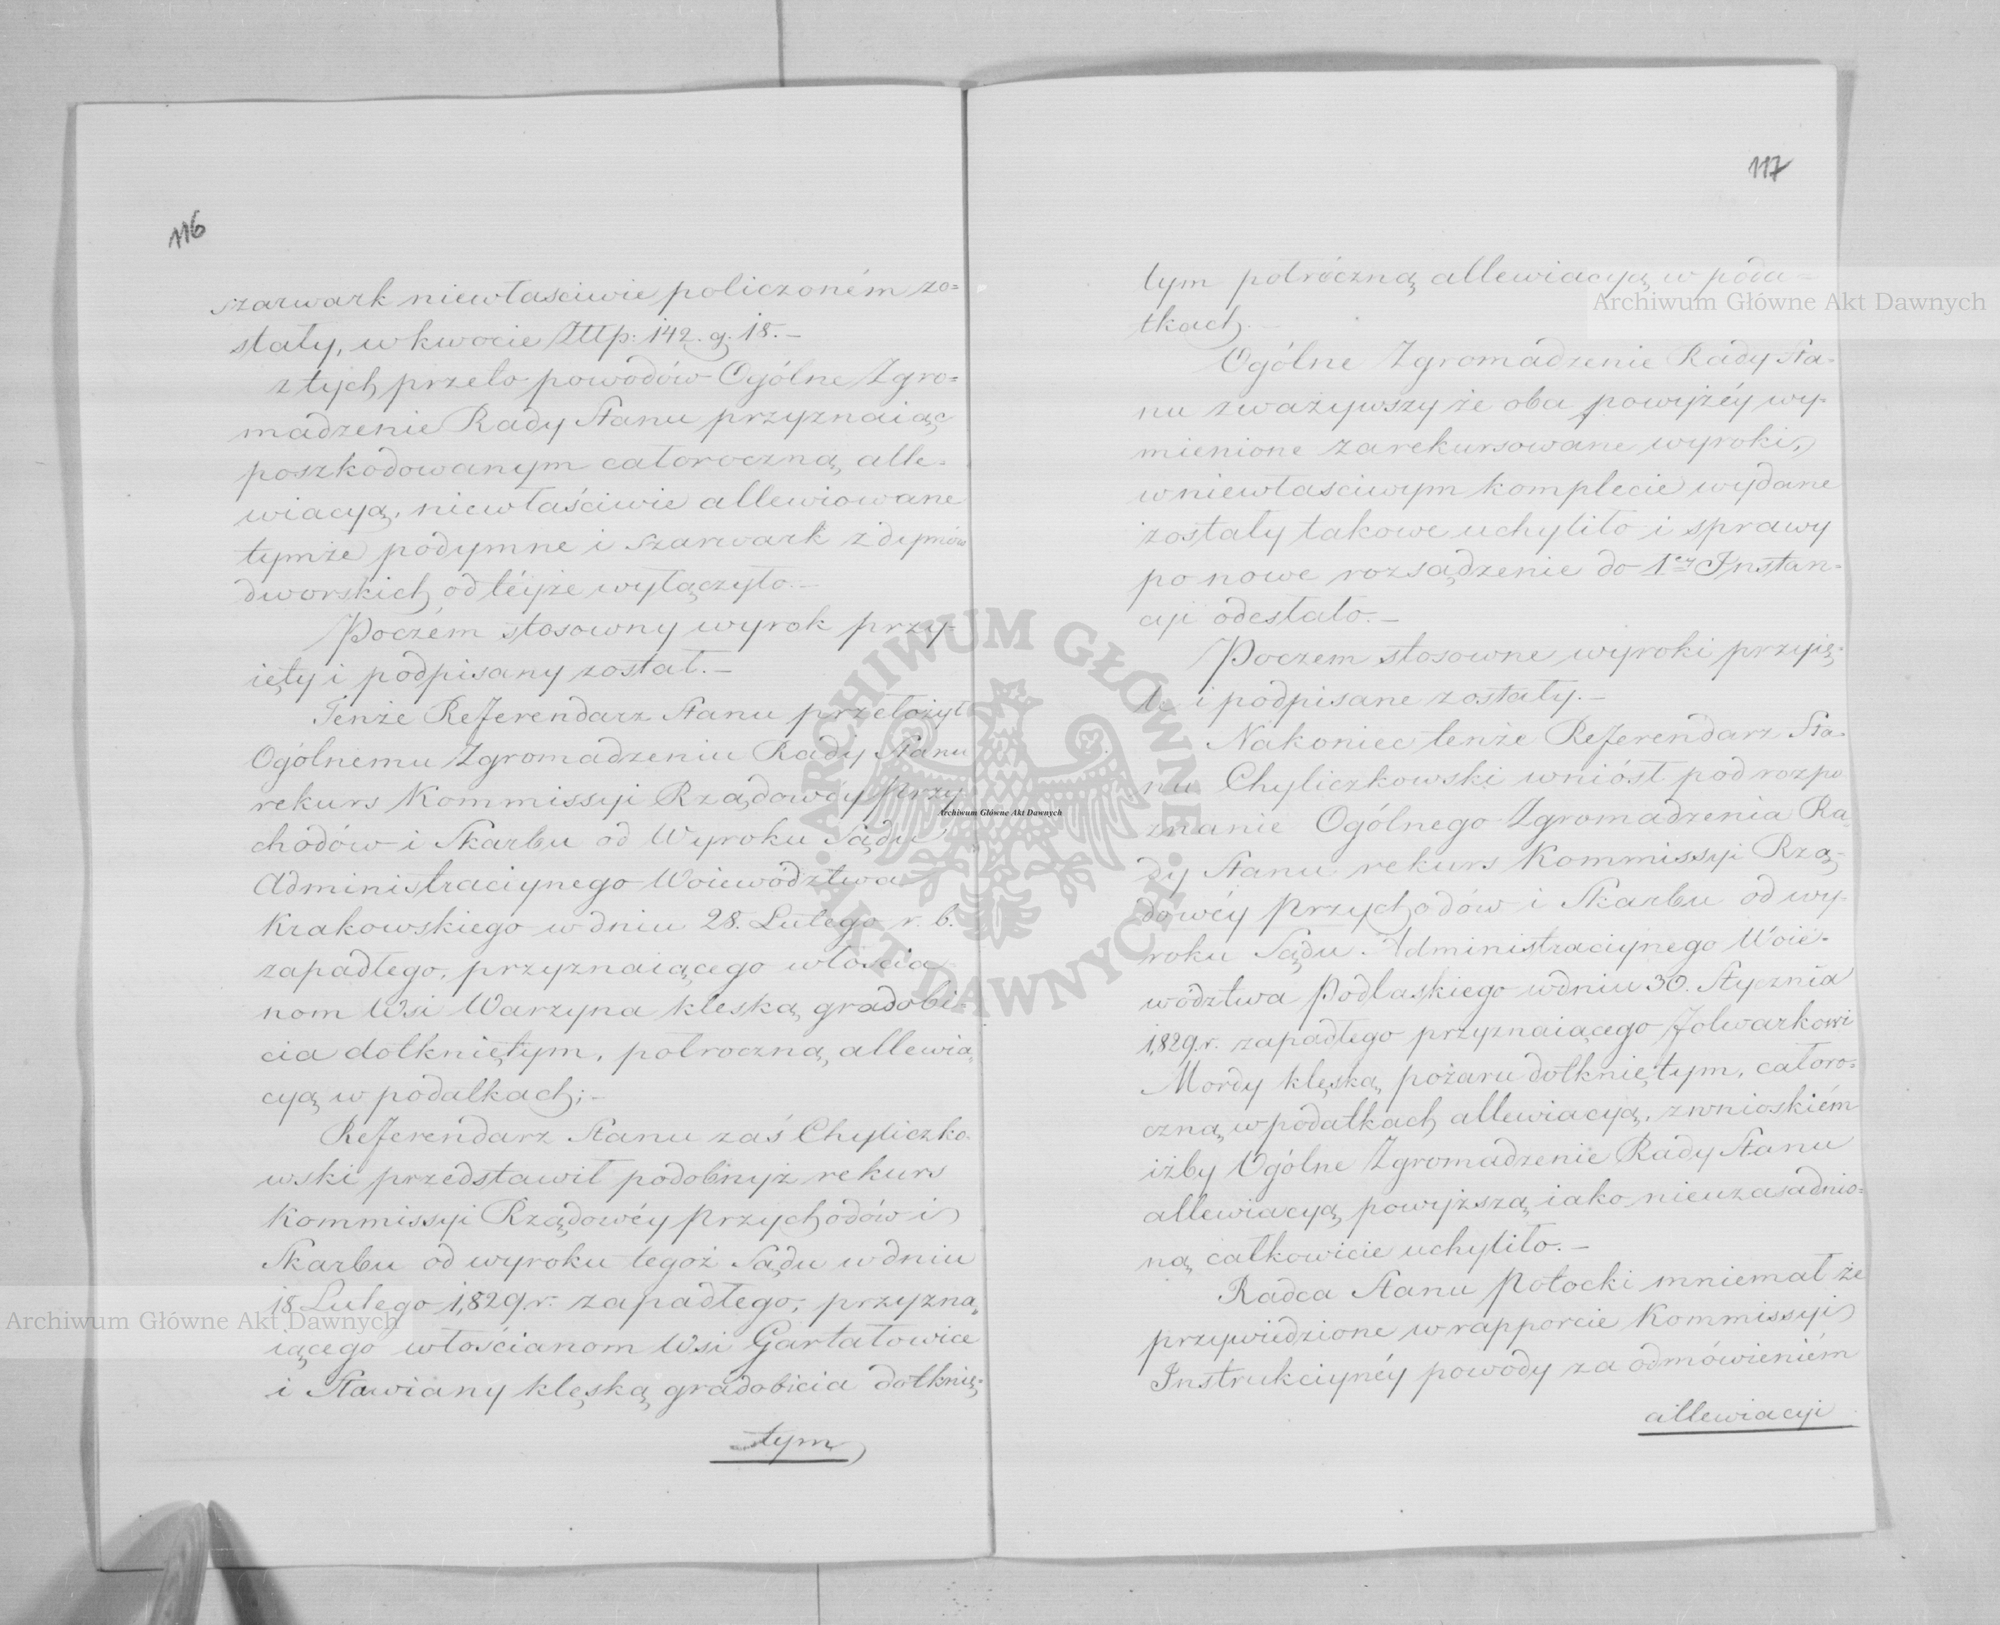 116
szarwark niewłasciwie policzoném zo=
stały, w kwocie Złłp: 142. g. 18.—
z tych przeto powodów Ogólne Zgro=
madzenie Rady Stanu przyznaiąc
poszkodowanym całoroczną, alle-
wiacyą, niewłaściwie allewiowane
tymże podymne i szarwark z dymów
dworskich od téyże wyłączyło.—
Poczém stosowny wyrok przy-
ięty i podpisany został.—
Tenże Referendarz Stanu przełożył
Ogólnemu Zgromadzeniu Rady Stanu
rekurs Kommissyi Rządowéy Przy
chodów i Skarbu od Wyroku Sądu
Administraciynego Woiewództwa
Krakowskiego w dniu 28. Lutego r. b.
zapadłego, przyznaiącego włościa
nom Wsi Warzyna klęską gradobi-
cia dotkniętym, połroczną allewia,
cyą w podatkach;—
Referendarz Stanu zaś Chyliczko.
wski przedstawił podobnyż rekurs
Kommissyi Rządowéy Przychodów i
Skarbu od wyroku tegoż Sądu w dniu
18 Lutego 1,829 r. zapadłego, przyzna,
iącego włościanom Wsi Gartatowice
i Stawiany klęską gradobicia dotknię=
tym
117
tym potróczną allewiacyą w poda=
tkach.—
Ogólne Zgromadzenie Rady Sta-
nu zważywszy że oba powyżéy wy-
mienione zarekursowane wyroki,
w niewłasciwym komplecie wydane
zostały takowe uchyliło i sprawy
po nowe rozsądzenie do 1éy Instan-
cyi odesłało.—
Poczem stosowne wyroki przyię-
te i podpisane zostały.—
Nakoniec tenże Referendarz Sta-
nu Chyliczkowski wniósł pod rozpo
znanie Ogólnego Zgromadzenia Ra-
dy Stanu rekurs Kommissyi Rzą-
dowéy Przychodów i Skarbu od wy-
roku Sądu Administraciynego Woie-
wództwa Podlaskiego w dniu 30. Stycznia
1,829. r. zapadłego przyznaiącego folwarkowi
Mordy klęską pożaru dotkniętym, całoro-
czną w podatkach allewiacyą, z wnioskiém
iżby Ogólne Zgromadzenie Rady Stanu
allewiacyą powyższą iako nieuzasadnio=
ną całkowicie uchyliło.—
Radca Stanu Potocki mniemał że
przywiedzione w rapporcie Kommissyi
Instrukcyinéy powody za odmówieniém
allewiacyi
Archiwum Główne Akt Dawnych
Archiwum Główne Akt Dawnych
Archiwum Główne Akt Dawnych
ARCHIWUM GŁÓWNE AKT DAWNYCH